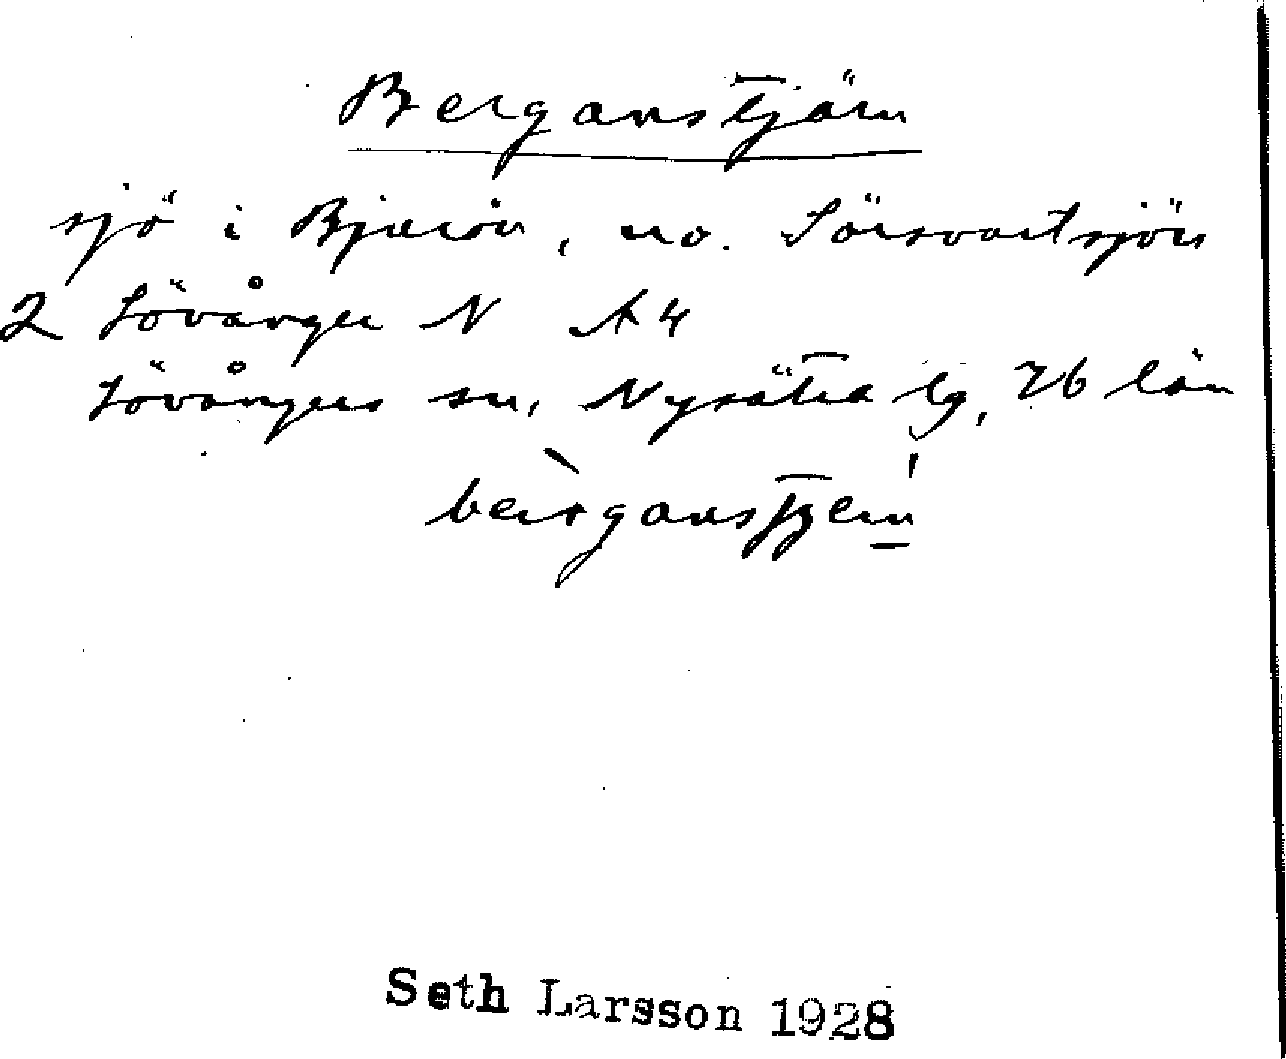 Berganstjärn
sjö i Bjurön, no. Sörsvartsjön
2 Lövånger N A 4
Lövångers sn, Nysätra tg, Vb län
Seth Larsson 1928